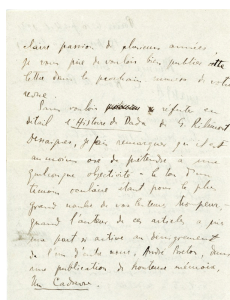 claire passion de plusieurs années,
je vous prie de vouloir bien publier cette
lettre dans le prochain numéro de votre
revue.
Sans vouloir réfuter en
détail l'Histoire de Dada de G. Ribemont
Dessaignes, je fais remarquer qu'il est
au moins osé de prétendre à une
quelconque objectivité – le ton d'un
témoin oculaire étant pour le plus
grand nombre de vos lecteurs
quand l'auteur de ces articles a pris
une part si active au dénigrement
de l'un d'entre nous, André Breton, dans
une publication de honteuse mémoire,
Un Cadavre.